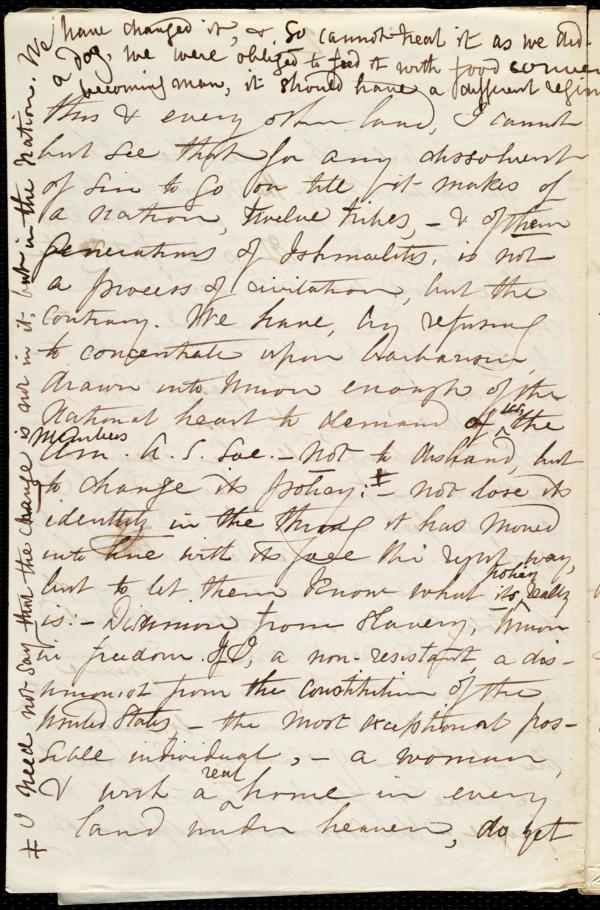 We have changed it, & so cannot treat it as we did.
a dog, we were obliged to feed it with food
becoming man, it should have a different
this & every other land, I cannot
but see that for any dissolvent
of sin to go on till it makes of
a nation, twelve tribes, - & of them
generations of Ishmaelites, is not
a process of civilization, but the
contrary. We have, by refusing
to concentrate upon barbarism,
drawn into Union enough of the
National heart to demand of us, the
members
Am. A. S. Soc. - not to disband, but
to change its policy: ‡ - not lose its
identity in the thing it has moved
into line with its face the right way,
but to let them know what its policy really
is: - Disunion from Slavery, Union
in freedom. If I, a non-resistant, a dis-
unionist from the Constitution of the
United States - the most exceptional pos-
sible individual, - a woman,
& with a real home in every
land under heaven, do yet
‡ I need not say that the change is not in it, but in the Nation.